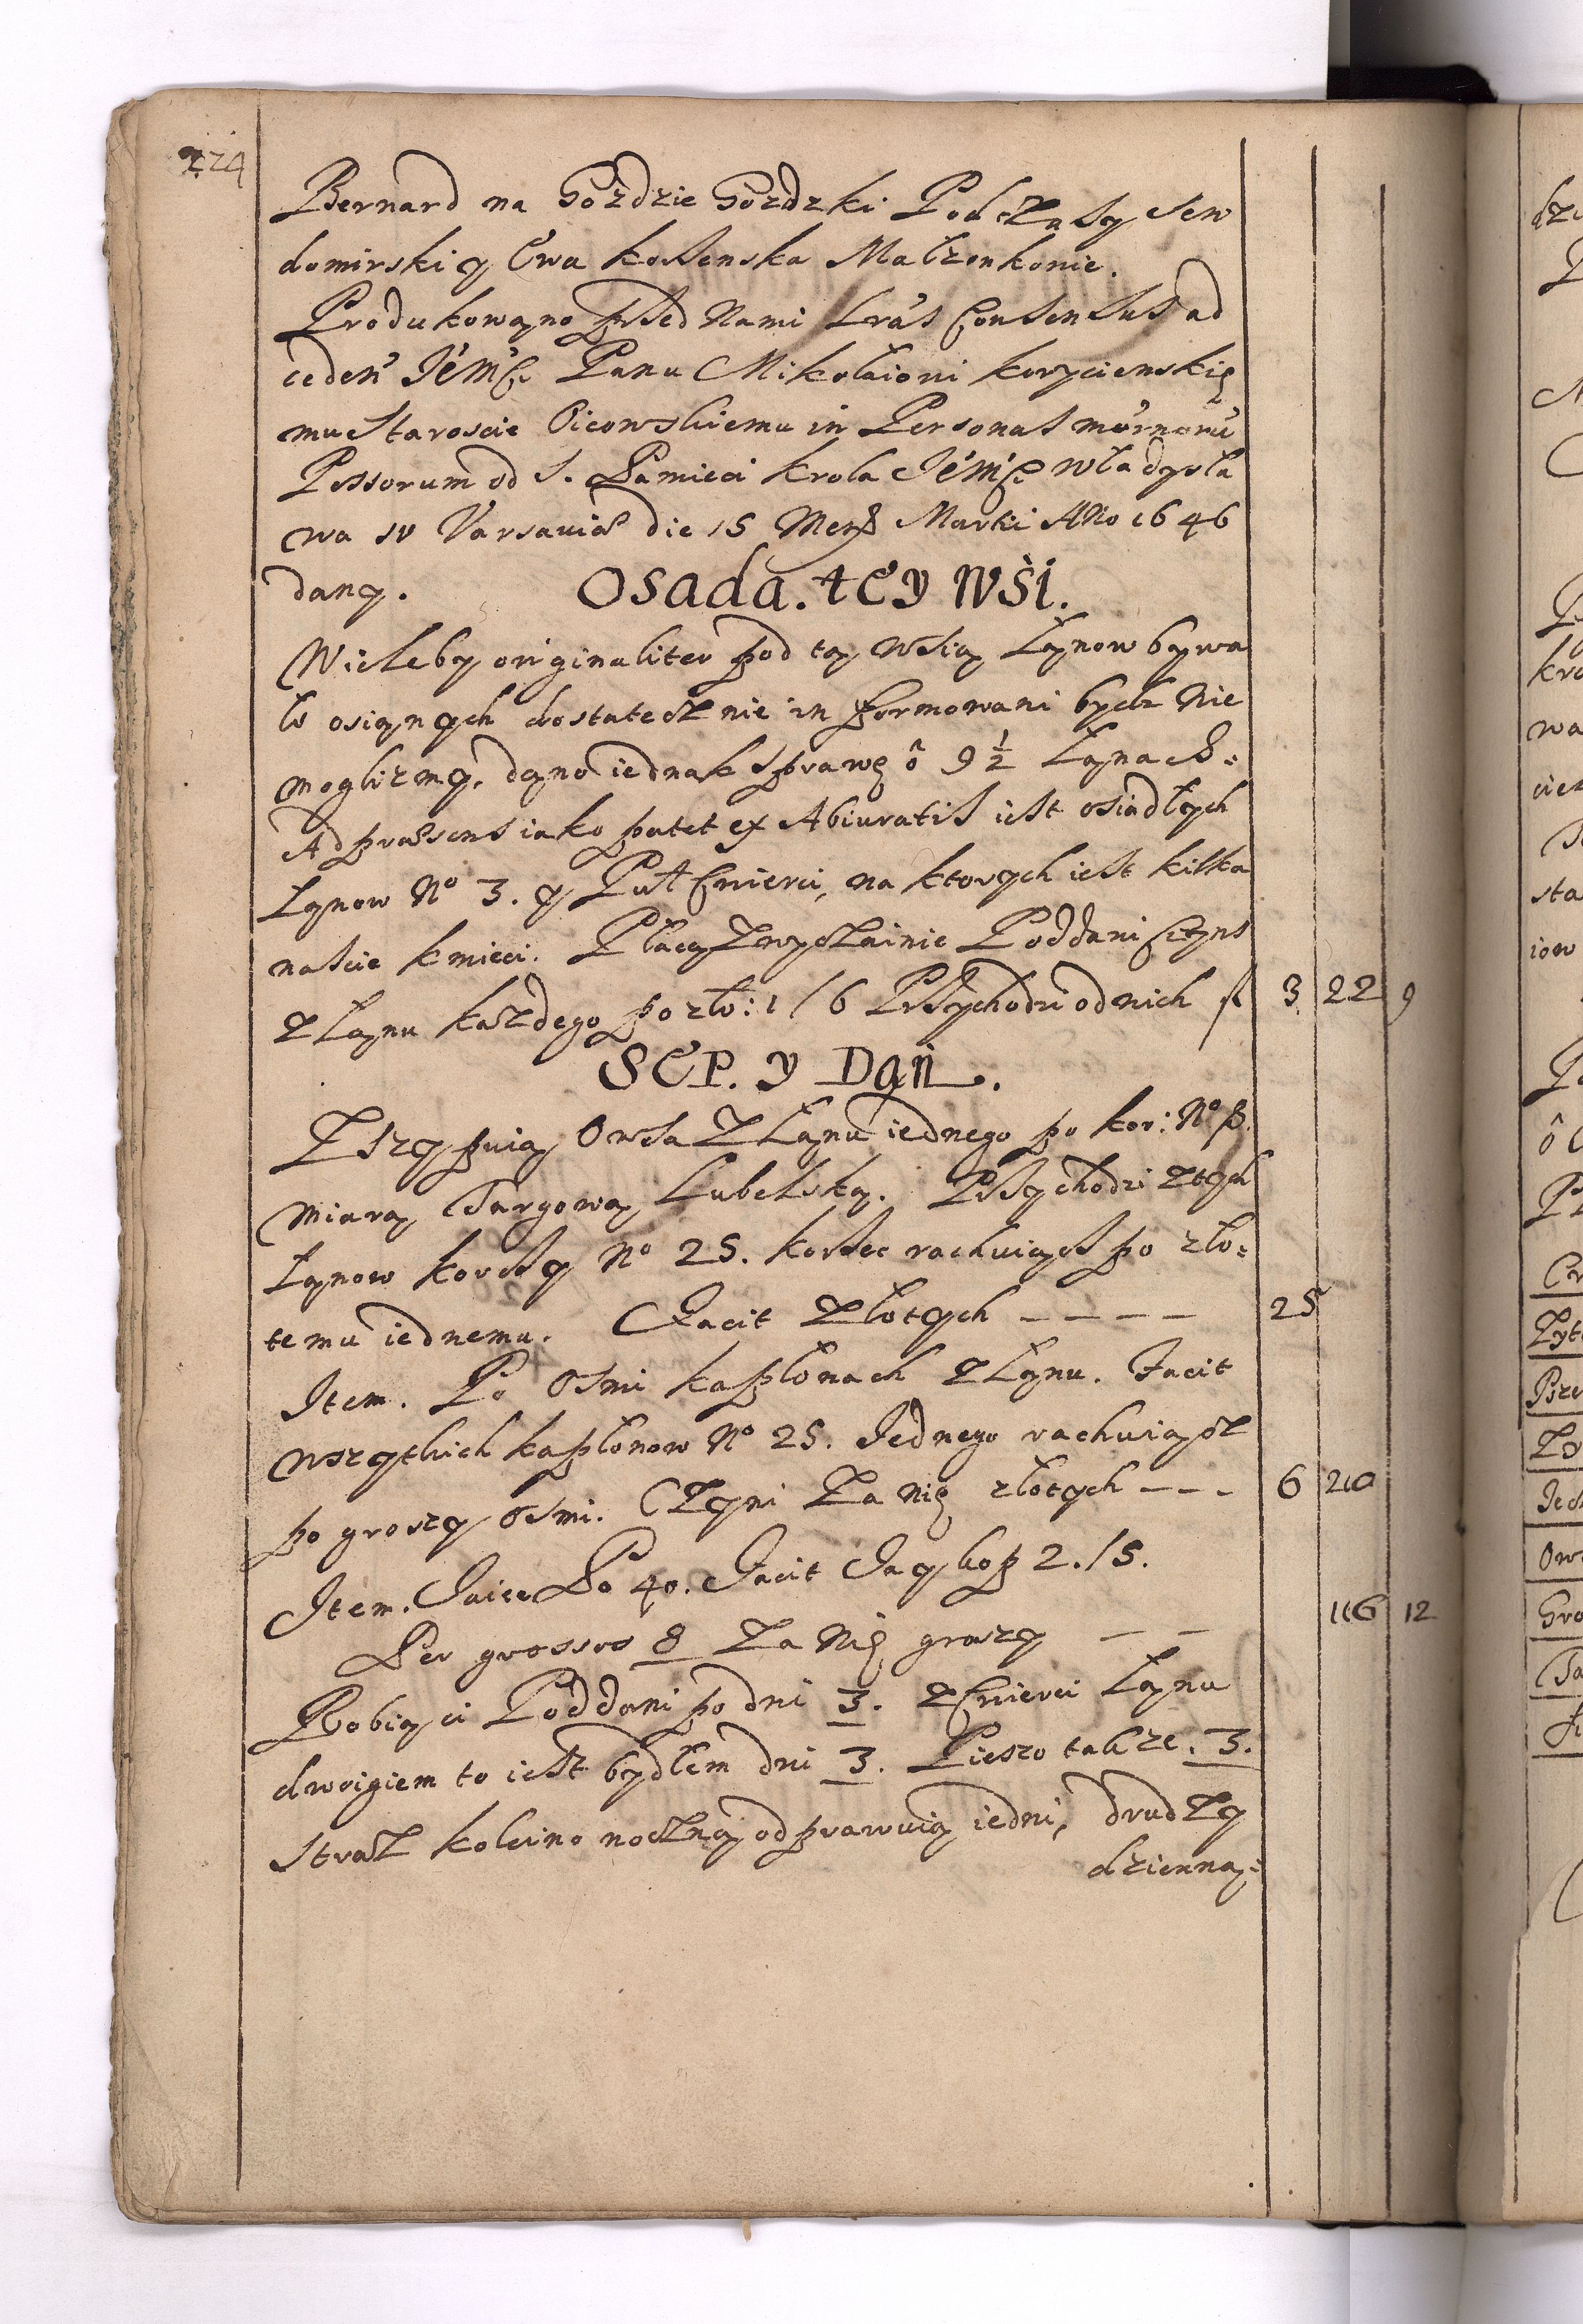 224
Bernard na Goździe Gozdzki Podczaszy Sen
domirski y Ewa kossenska Małzonkowie.
Produkowano przed Nami Lras Consensus ad
ceden Jem̃c Panu Mikołaiowi korycienskie
mu Staroscie Oicowskiemu in Personas mdernorũ
Possorum od S. Pamięci krola Jem̃c Władysła
wa IV Varsaviæ die 15 Mens Martii Anno 1646
dany.
Osada. tey wsi.
Wieleby originaliter pod tą wsią Łanow bywa
ło osianych dostatecznie informowani bydz Nie
moglismy. dano iednak sprawę ô 9 1/2 Łanach:
Ad præsens iako patet ex Abiuratis iest osiadłych
Łanow No 3. y Puł Cwierci, na ktorych iest kilka
nascie kmieci. Płacą zwyczainie Poddani Czyns
z Łanu kazdego po zło: 1/6 Przychodzi od nich fl 3 22 9
SEP. y Dań.
Zszypuią Owsa z Łanu iednego po kor: No 8.
Miarą Targową Lubelską. Przychodzi z tych
Łanow korcy No 25. korzec rachuiąc po zło:
temu iednemu. Facit złotych – – – – 25
Item. Po Osmi kapłonach z Łanu. Facit
wszytkich kapłonow No 25. Jednego rachuiącz
po groszy osmi. Czyni za nie złotych – – – 6 20
Item. Jaiec Po 40. Facit Jay kop 2. /5.
Per grossos 8 za Nie groszy – – 16 12
Robią ci Poddani po dni 3. z Cwierci Łanu
dwoigiem to iest bydłem dni 3. Pieszo takze. 3.
Straż koleino nocną odprawuią iedni, drudzy
dzienną: